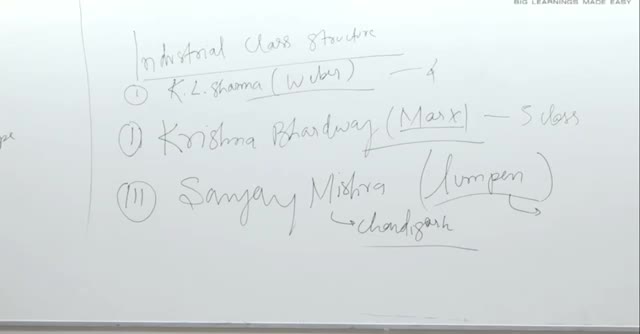 BIG LEARNINGS MADE EASY
Industrial Class structure
① K.L. Sharma (Weber) —
Ⓘ Krishna Bhardwaj (Marx) — 5 class
III Sanjay Mishra (lumpen)
↳ Chandigarh